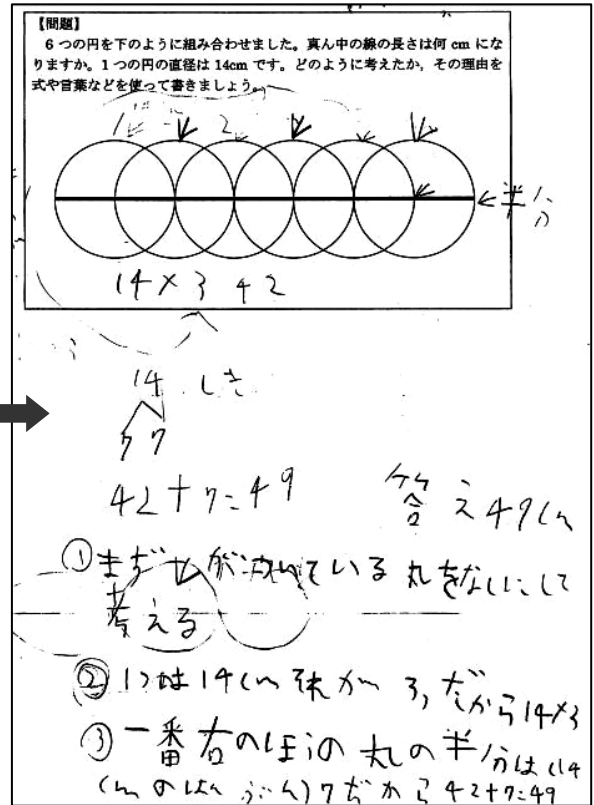 【問題】
6つの円を下のように組み合わせました。真ん中の線の長さは何 cm にな
りますか。1つの円の直径は 14cm です。どのように考えたか，その理由を
式や言葉などを使って書きましょう。
1 2
半分
14×3 42
14 しき
7 7
42+7=49
答え49cm
①まず が 丸をないにして
考える
②1つは14cm それが3つだから14×3
③一番右のほうの丸の半分は(14
cmのはんぶん)7だから42+7=49